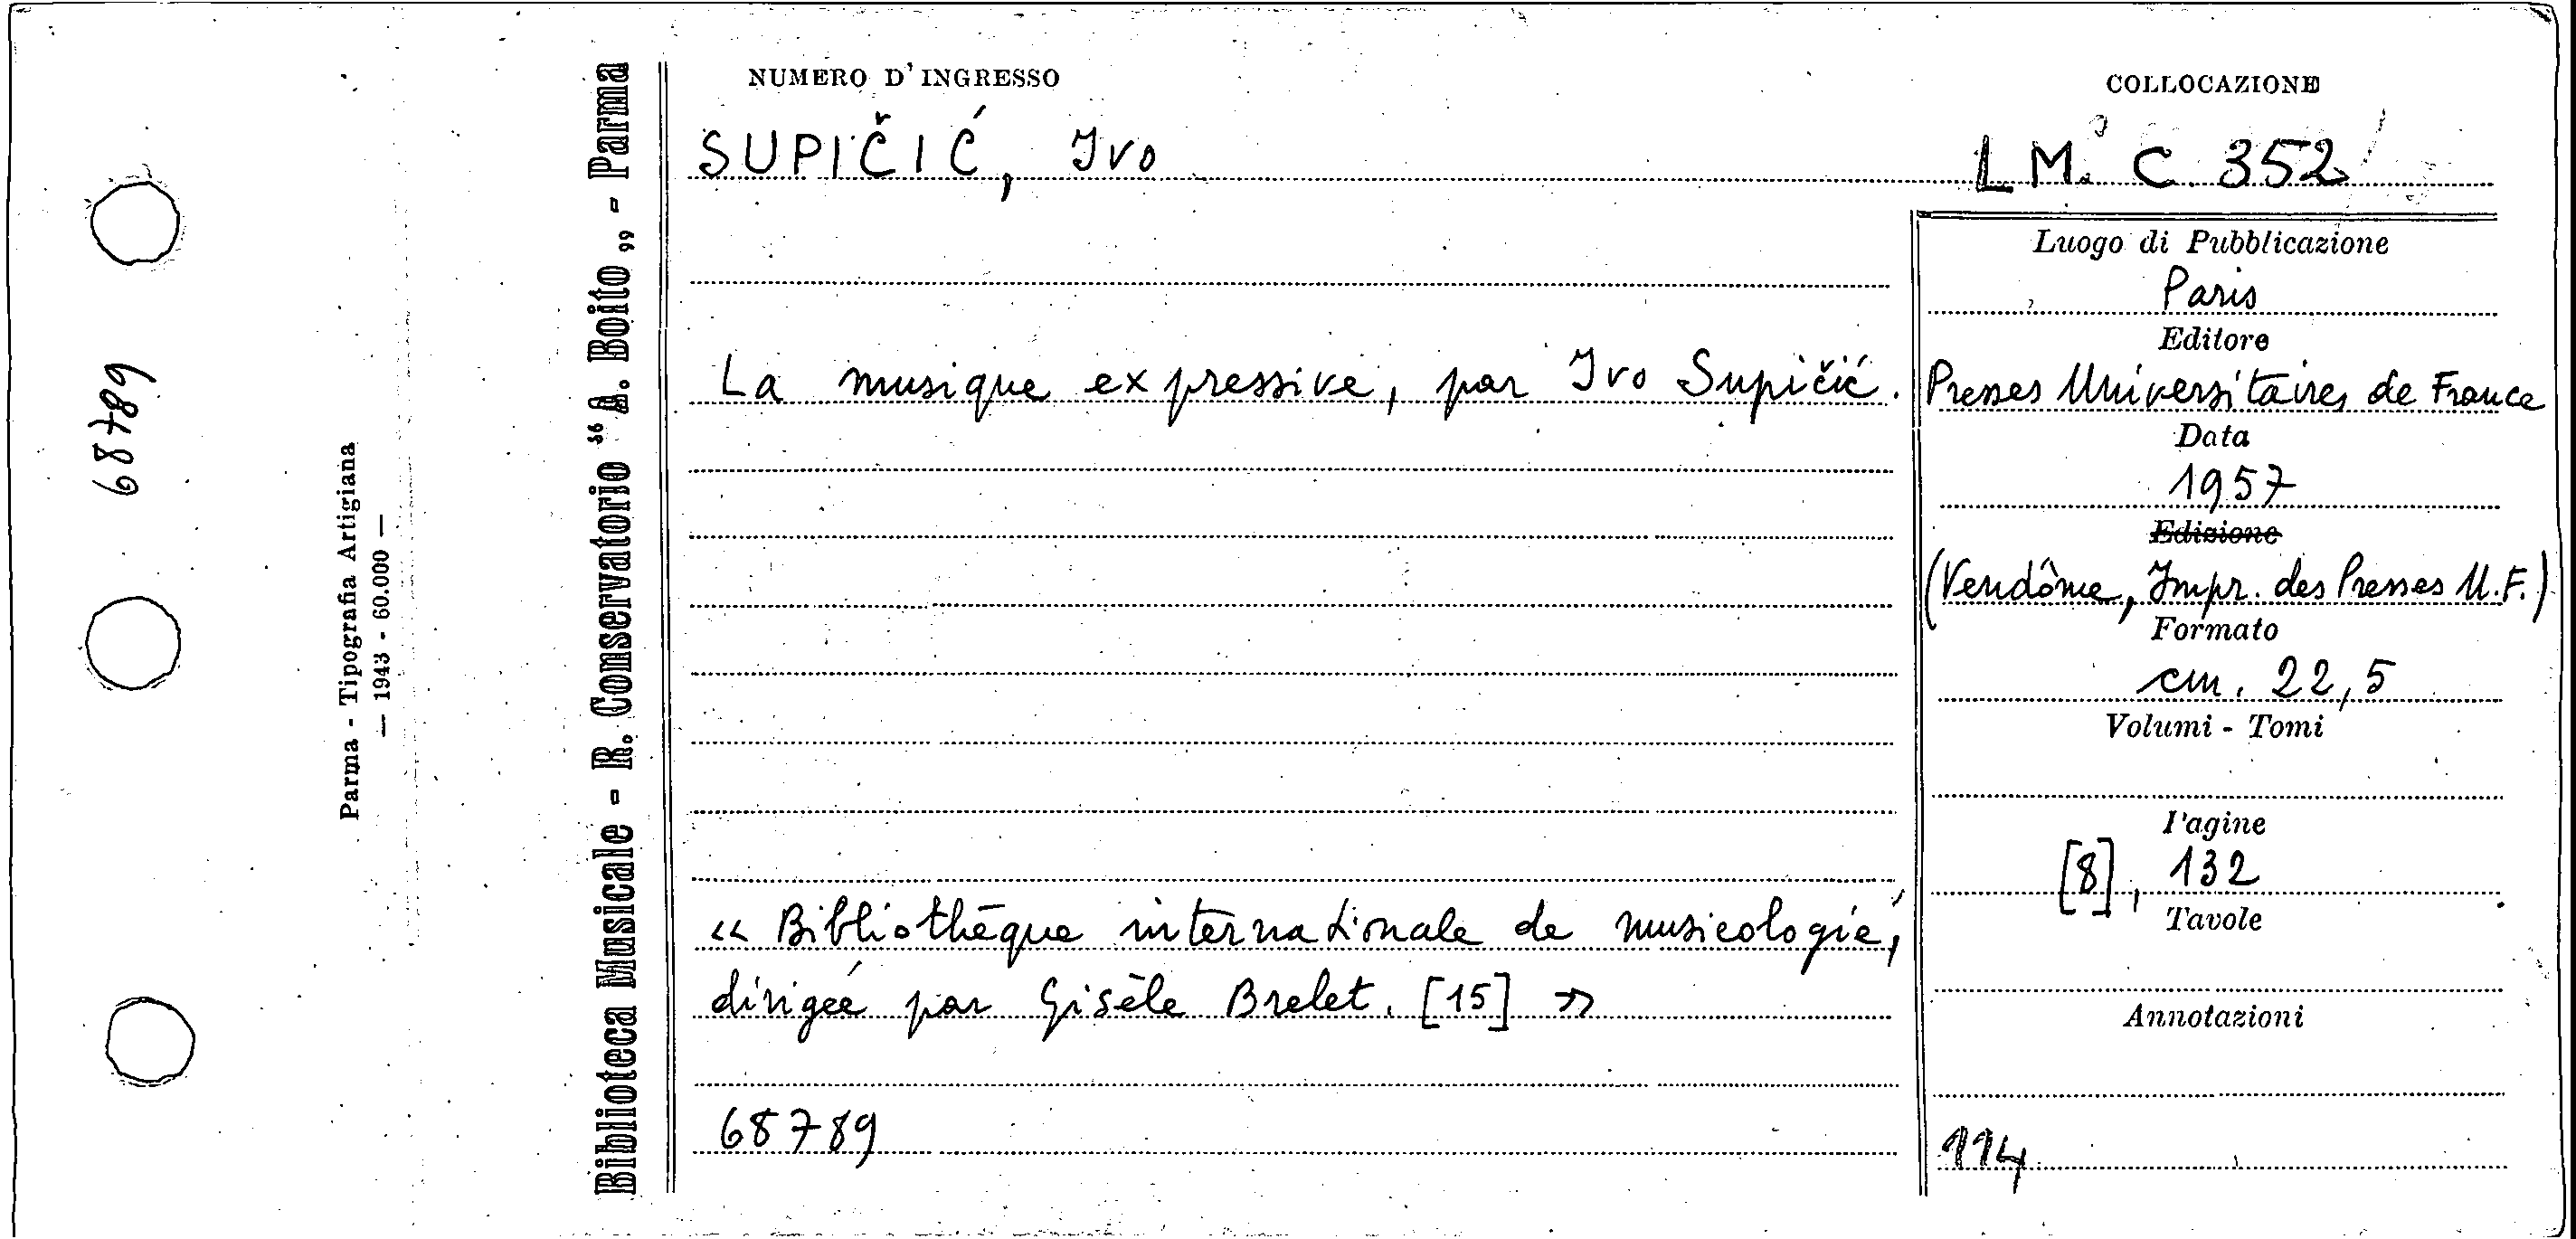 68789
Parma - Tipografia Artigiana
— 1943 - 60.000 —
Biblioteca Musicale - R. Conservatorio “A. Boito„ - Parma
NUMERO D'INGRESSO
COLLOCAZIONE
SUPIČIĆ, Ivo
LM. C 352
La musique expressive, par Ivo Supičić.
« Bibliothèque internationale de musicologie,
dirigée par Gisèle Brelet. [15] »
68789
Luogo di Pubblicazione
Paris
Editore
Presses Universitaires de France
Data
1957
Edizione
(Vendôme, Impr. des Presses U.F.)
Formato
cm. 22,5
Volumi - Tomi
Pagine
[8], 132
Tavole
Annotazioni
114